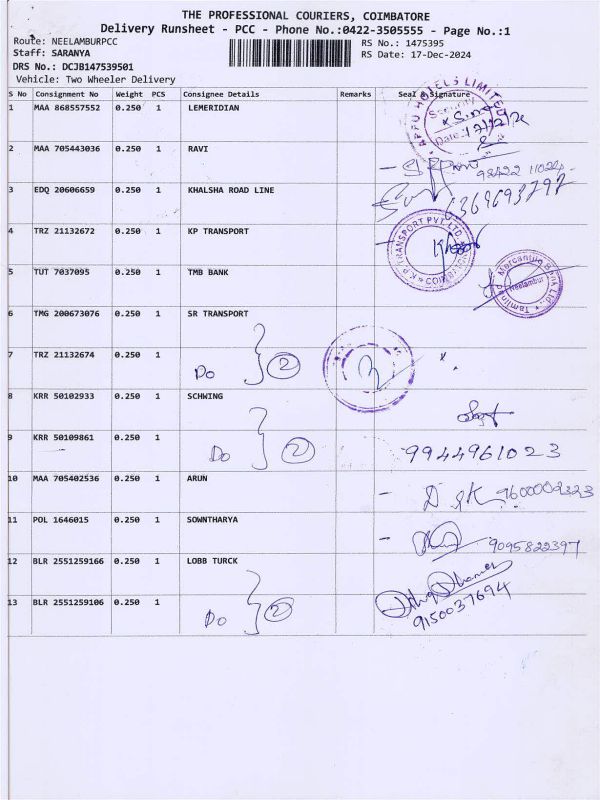 THE PROFESSIONAL COURIERS, COIMBATORE
Delivery Runsheet - PCC - Phone No.:0422-3505555 - Page No.:1
Route: NEELAMBURPCC
RS No.: 1475395
Staff: SARANYA
RS Date: 17-Dec-2024
DRS No.: DCJB147539501
Vehicle: Two Wheeler Delivery
S No Consignment No Weight PCS Consignee Details Remarks Seal & Signature
1 MAA 868557552 0.250 1 LEMERIDIAN
APPU HOTELS LIMITED
Security
Date: 17/12/24
2 MAA 705443036 0.250 1 RAVI
98422 11024
3 EDQ 20606659 0.250 1 KHALSHA ROAD LINE
6369693797
4 TRZ 21132672 0.250 1 KP TRANSPORT
K.P. TRANSPORT PVT LTD
5 TUT 7037095 0.250 1 TMB BANK
Tamilnad Mercantile Bank Ltd.,
Neelambur
6 TMG 200673076 0.250 1 SR TRANSPORT
7 TRZ 21132674 0.250 1 Do } 2
8 KRR 50102933 0.250 1 SCHWING
9 KRR 50109861 0.250 1 Do } 2 9944961023
10 MAA 705402536 0.250 1 ARUN
9600009323
11 POL 1646015 0.250 1 SOWNTHARYA
9095822397
12 BLR 2551259166 0.250 1 LOBB TURCK
13 BLR 2551259106 0.250 1 Do } 2 9150037694